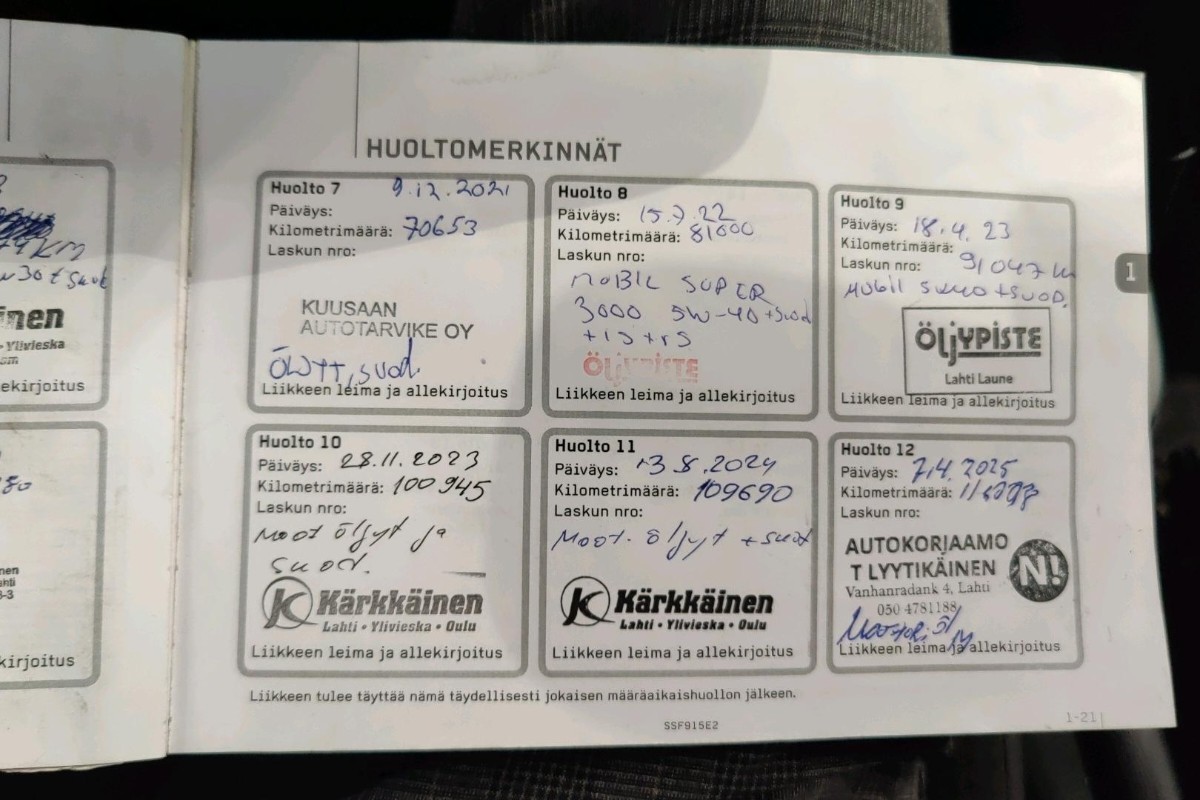 74 KM
W30 + suod
inen
• Ylivieska
ekirjoitus
kirjoitus
HUOLTOMERKINNÄT
Huolto 7
9.12.2021
Päiväys:
Kilometrimäärä: 70653
Laskun nro:
KUUSAAN
AUTOTARVIKE OY
ÖLJYT, suod.
Liikkeen leima ja allekirjoitus
Huolto 8
Päiväys: 15.7.22
Kilometrimäärä: 81000
Laskun nro:
MOBIL SUPER
3000 5W-40 + suod
Öljypiste
Liikkeen leima ja allekirjoitus
Huolto 9
Päiväys: 18.4.23
Kilometrimäärä:
Laskun nro: 91047 km
Mobil 5W40 + suod.
ÖljYPISTE
Lahti Laune
Liikkeen leima ja allekirjoitus
1
Huolto 10
Päiväys: 28.11.2023
Kilometrimäärä: 100945
Laskun nro:
Moot öljyt ja
suod.
Kärkkäinen
Lahti • Ylivieska • Oulu
Liikkeen leima ja allekirjoitus
Huolto 11
Päiväys: 13.8.2024
Kilometrimäärä: 109690
Laskun nro:
Moot. öljyt + suod
Kärkkäinen
Lahti • Ylivieska • Oulu
Liikkeen leima ja allekirjoitus
Huolto 12
Päiväys: 7.4.2025
Kilometrimäärä:
Laskun nro:
AUTOKORJAAMO
T LYYTIKÄINEN
N!
Vanhanradank 4, Lahti
050 4781188
Liikkeen leima ja allekirjoitus
Liikkeen tulee täyttää nämä täydellisesti jokaisen määräaikaishuollon jälkeen.
SSF915E2
1-21